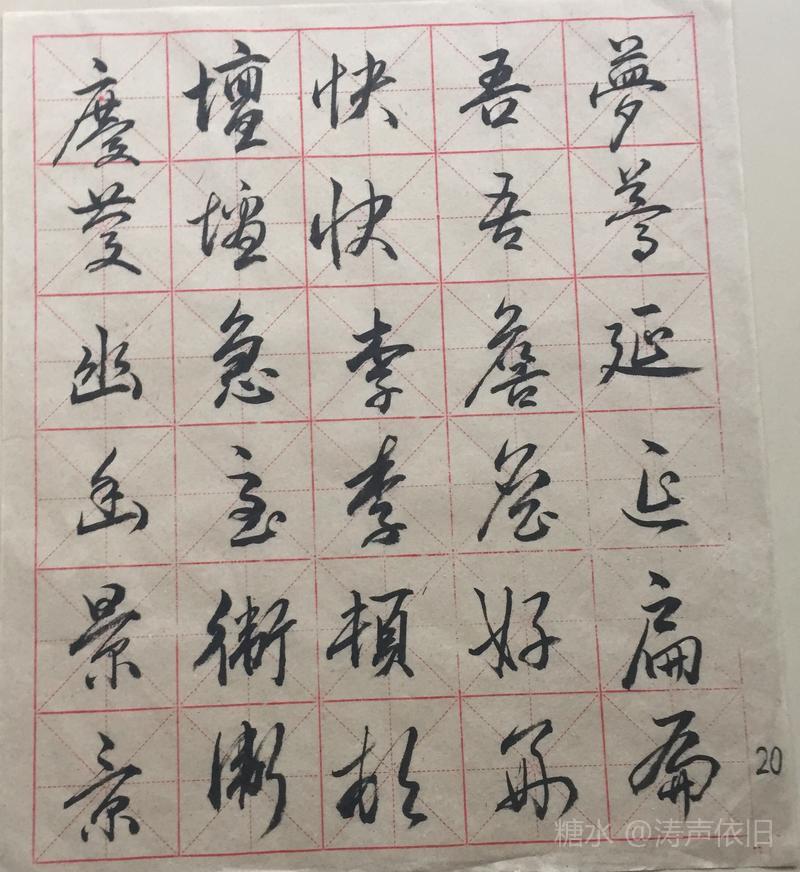 夢夢延延扁扁
吾吾詹詹好好
快快李李頓頓
壇壇急急衛衛
慶慶幽幽景景
20
糖水 @涛声依旧